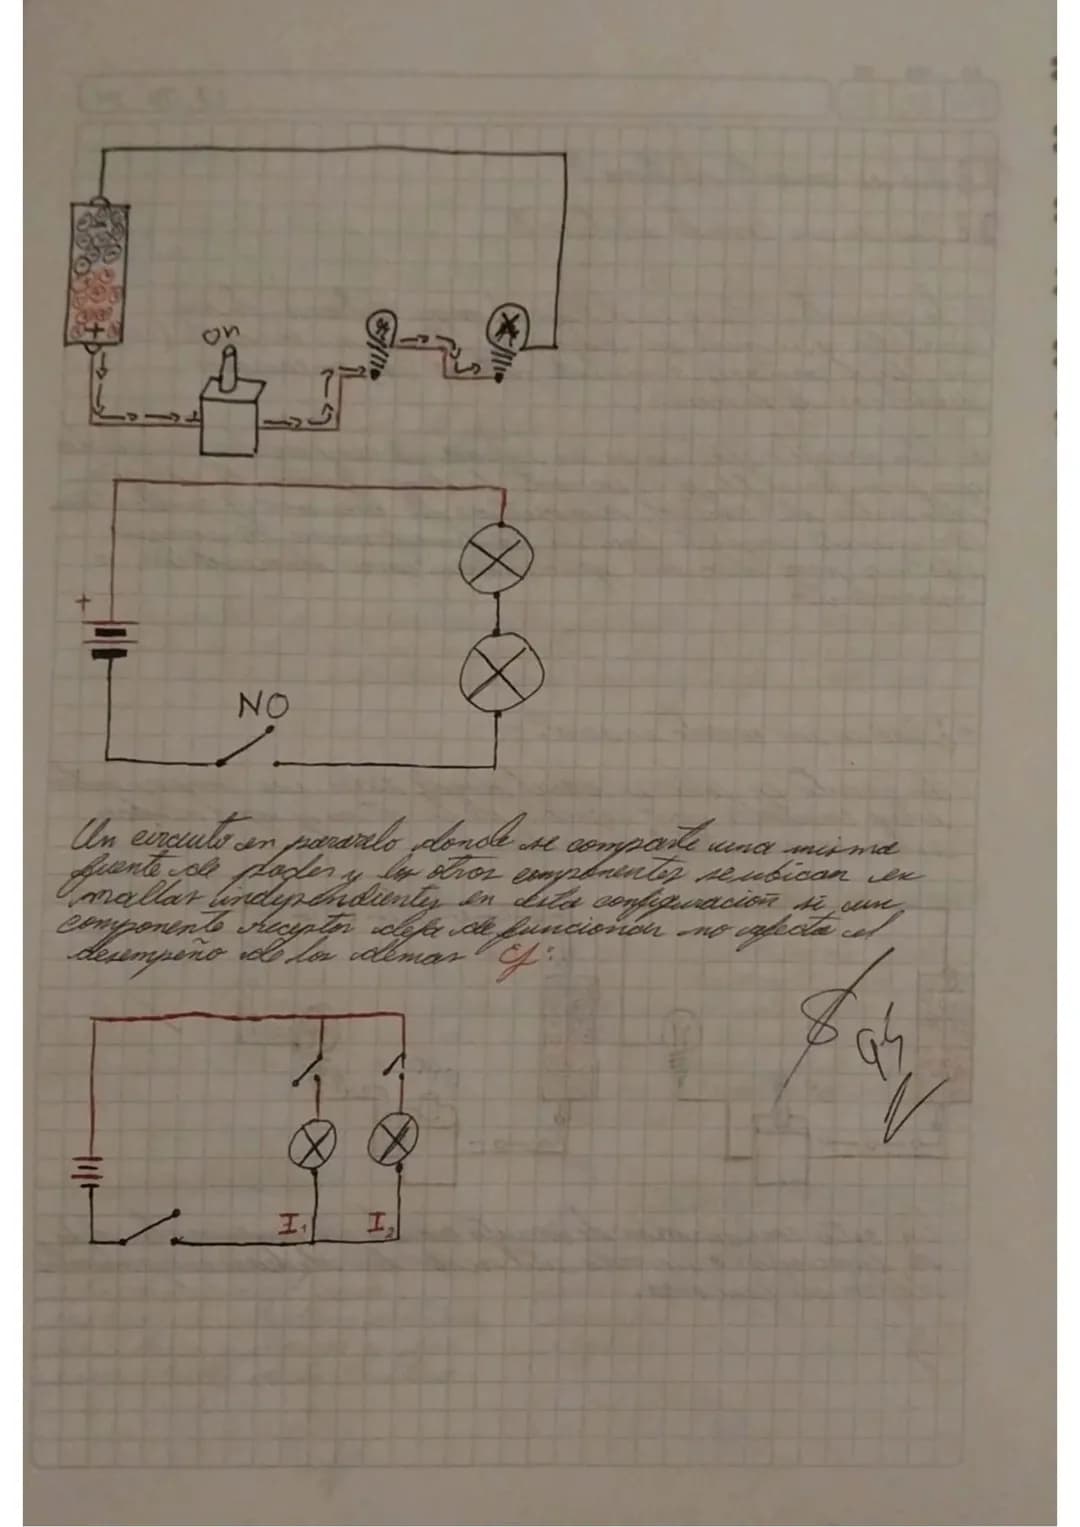 on
+
+
NO
Un circuito en paravelo donde se comparte una misma
fuente de poder y los otros componentes se ubican en
mallas independientes en esta configuración si un
componente receptor deja de funcionar no afecta el
desempeño de los demas Ej:
I₁ I₂